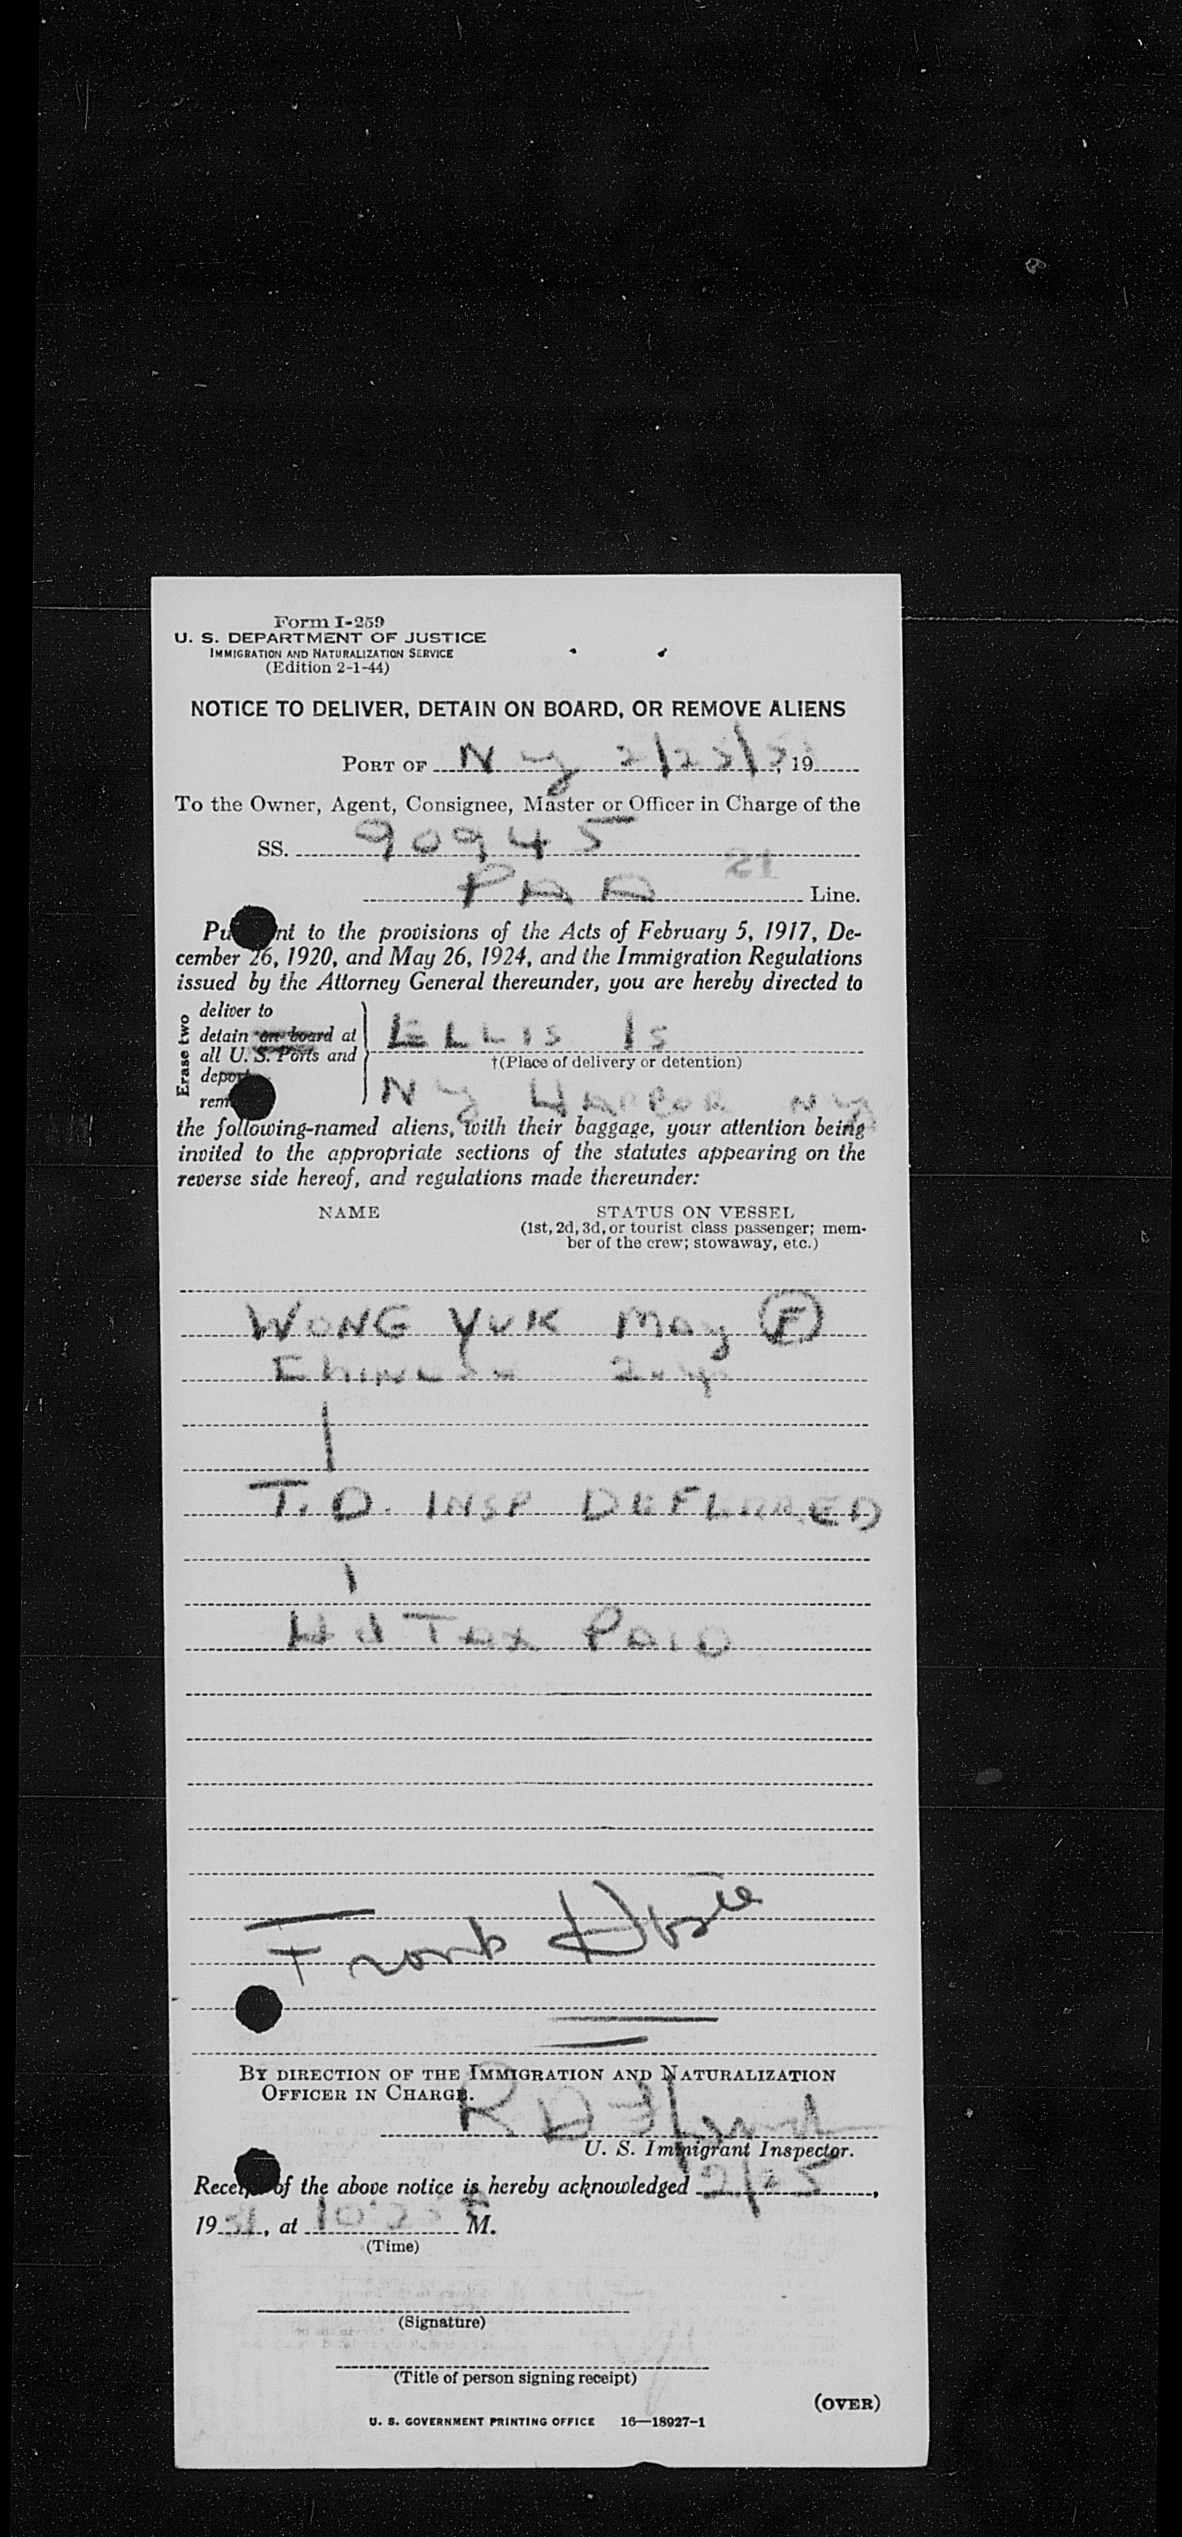 Form I-259
U. S. DEPARTMENT OF JUSTICE
IMMIGRATION AND NATURALIZATION SERVICE
(Edition 2-1-44)
NOTICE TO DELIVER, DETAIN ON BOARD, OR REMOVE ALIENS
PORT OF N Y 19
To the Owner, Agent, Consignee, Master or Officer in Charge of the
SS. 90945
51
PAA Line.
Pu nt to the provisions of the Acts of February 5, 1917, De-
cember 26, 1920, and May 26, 1924, and the Immigration Regulations
issued by the Attorney General thereunder, you are hereby directed to
Erase two
deliver to
detain on board at
all U. S. Ports and
deport
rem
ELLIS Is
†(Place of delivery or detention)
NY HARBOR NY
the following-named aliens, with their baggage, your attention being
invited to the appropriate sections of the statutes appearing on the
reverse side hereof, and regulations made thereunder:
NAME STATUS ON VESSEL
(1st, 2d, 3d, or tourist class passenger; mem-
ber of the crew; stowaway, etc.)
WONG YUK May F
Chinese
T.D. INSP DEFERRED
Hd Tax PAID
Frank
BY DIRECTION OF THE IMMIGRATION AND NATURALIZATION
OFFICER IN CHARGE.
U. S. Immigrant Inspector.
Receipt of the above notice is hereby acknowledged 2/25,
1951, at A M.
(Time)
(Signature)
(Title of person signing receipt)
(OVER)
U. S. GOVERNMENT PRINTING OFFICE 16—18927-1